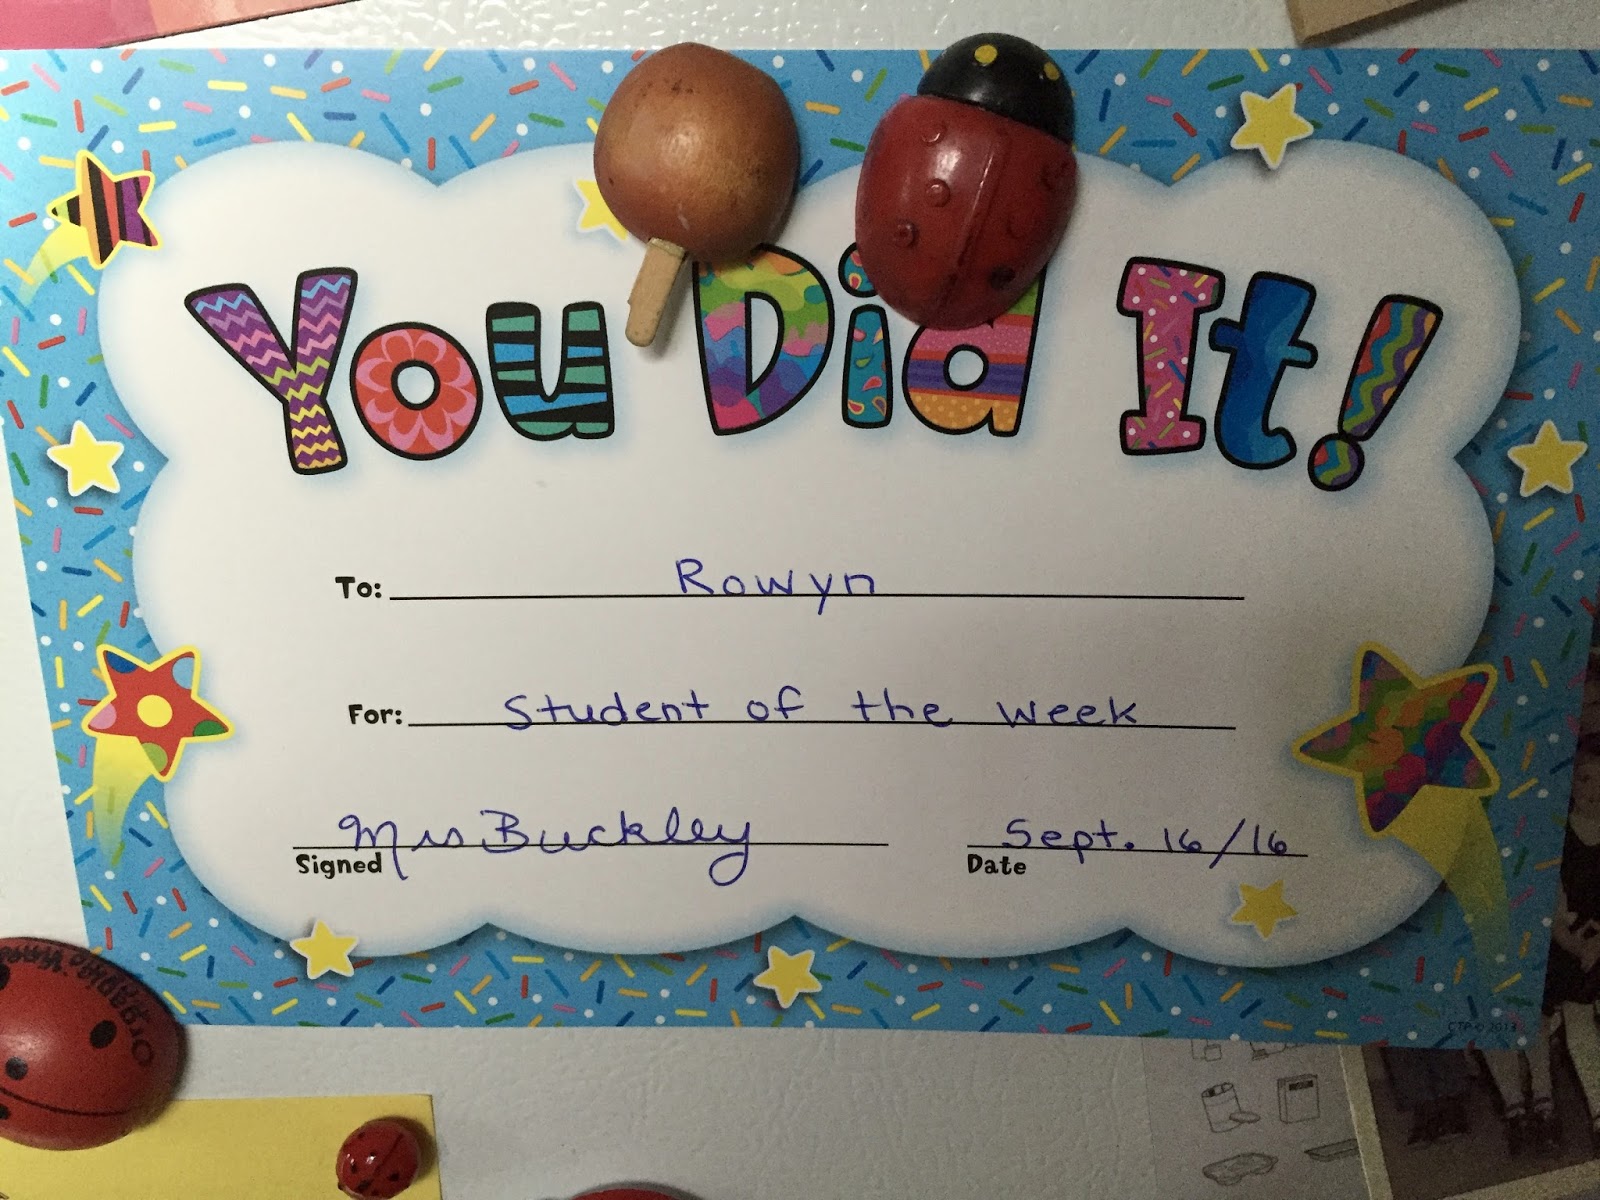 You Did It!
To: Rowyn
For: Student of the week
Mrs Buckley Sept. 16/16
Signed Date
CTP © 2013